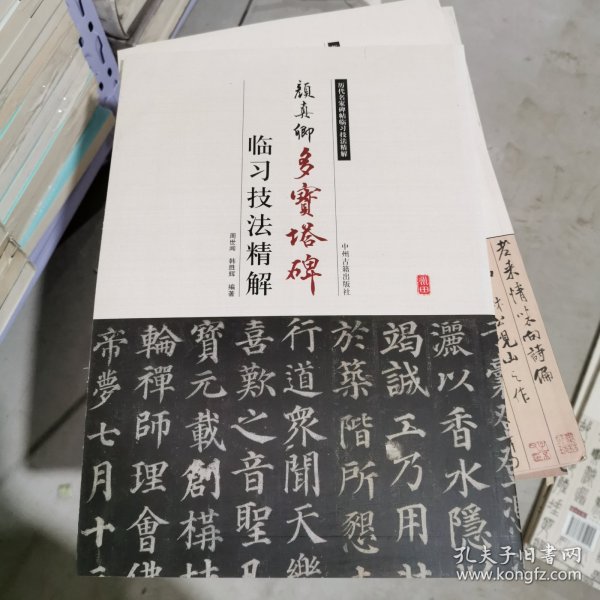 历代名家碑帖临习技法精解
颜真卿
多寳塔碑
临习技法精解
周世闻 韩胜辉 编著
中州古籍出版社
灑以香水隱
竭誠工乃用
於築階所懇
行道眾聞天樂
喜歎之音聖
寳元載創構
輪禪師理會佛
帝夢七月十
老來情味向詩偏
見山之作
孔夫子旧书网
www.kongfz.com